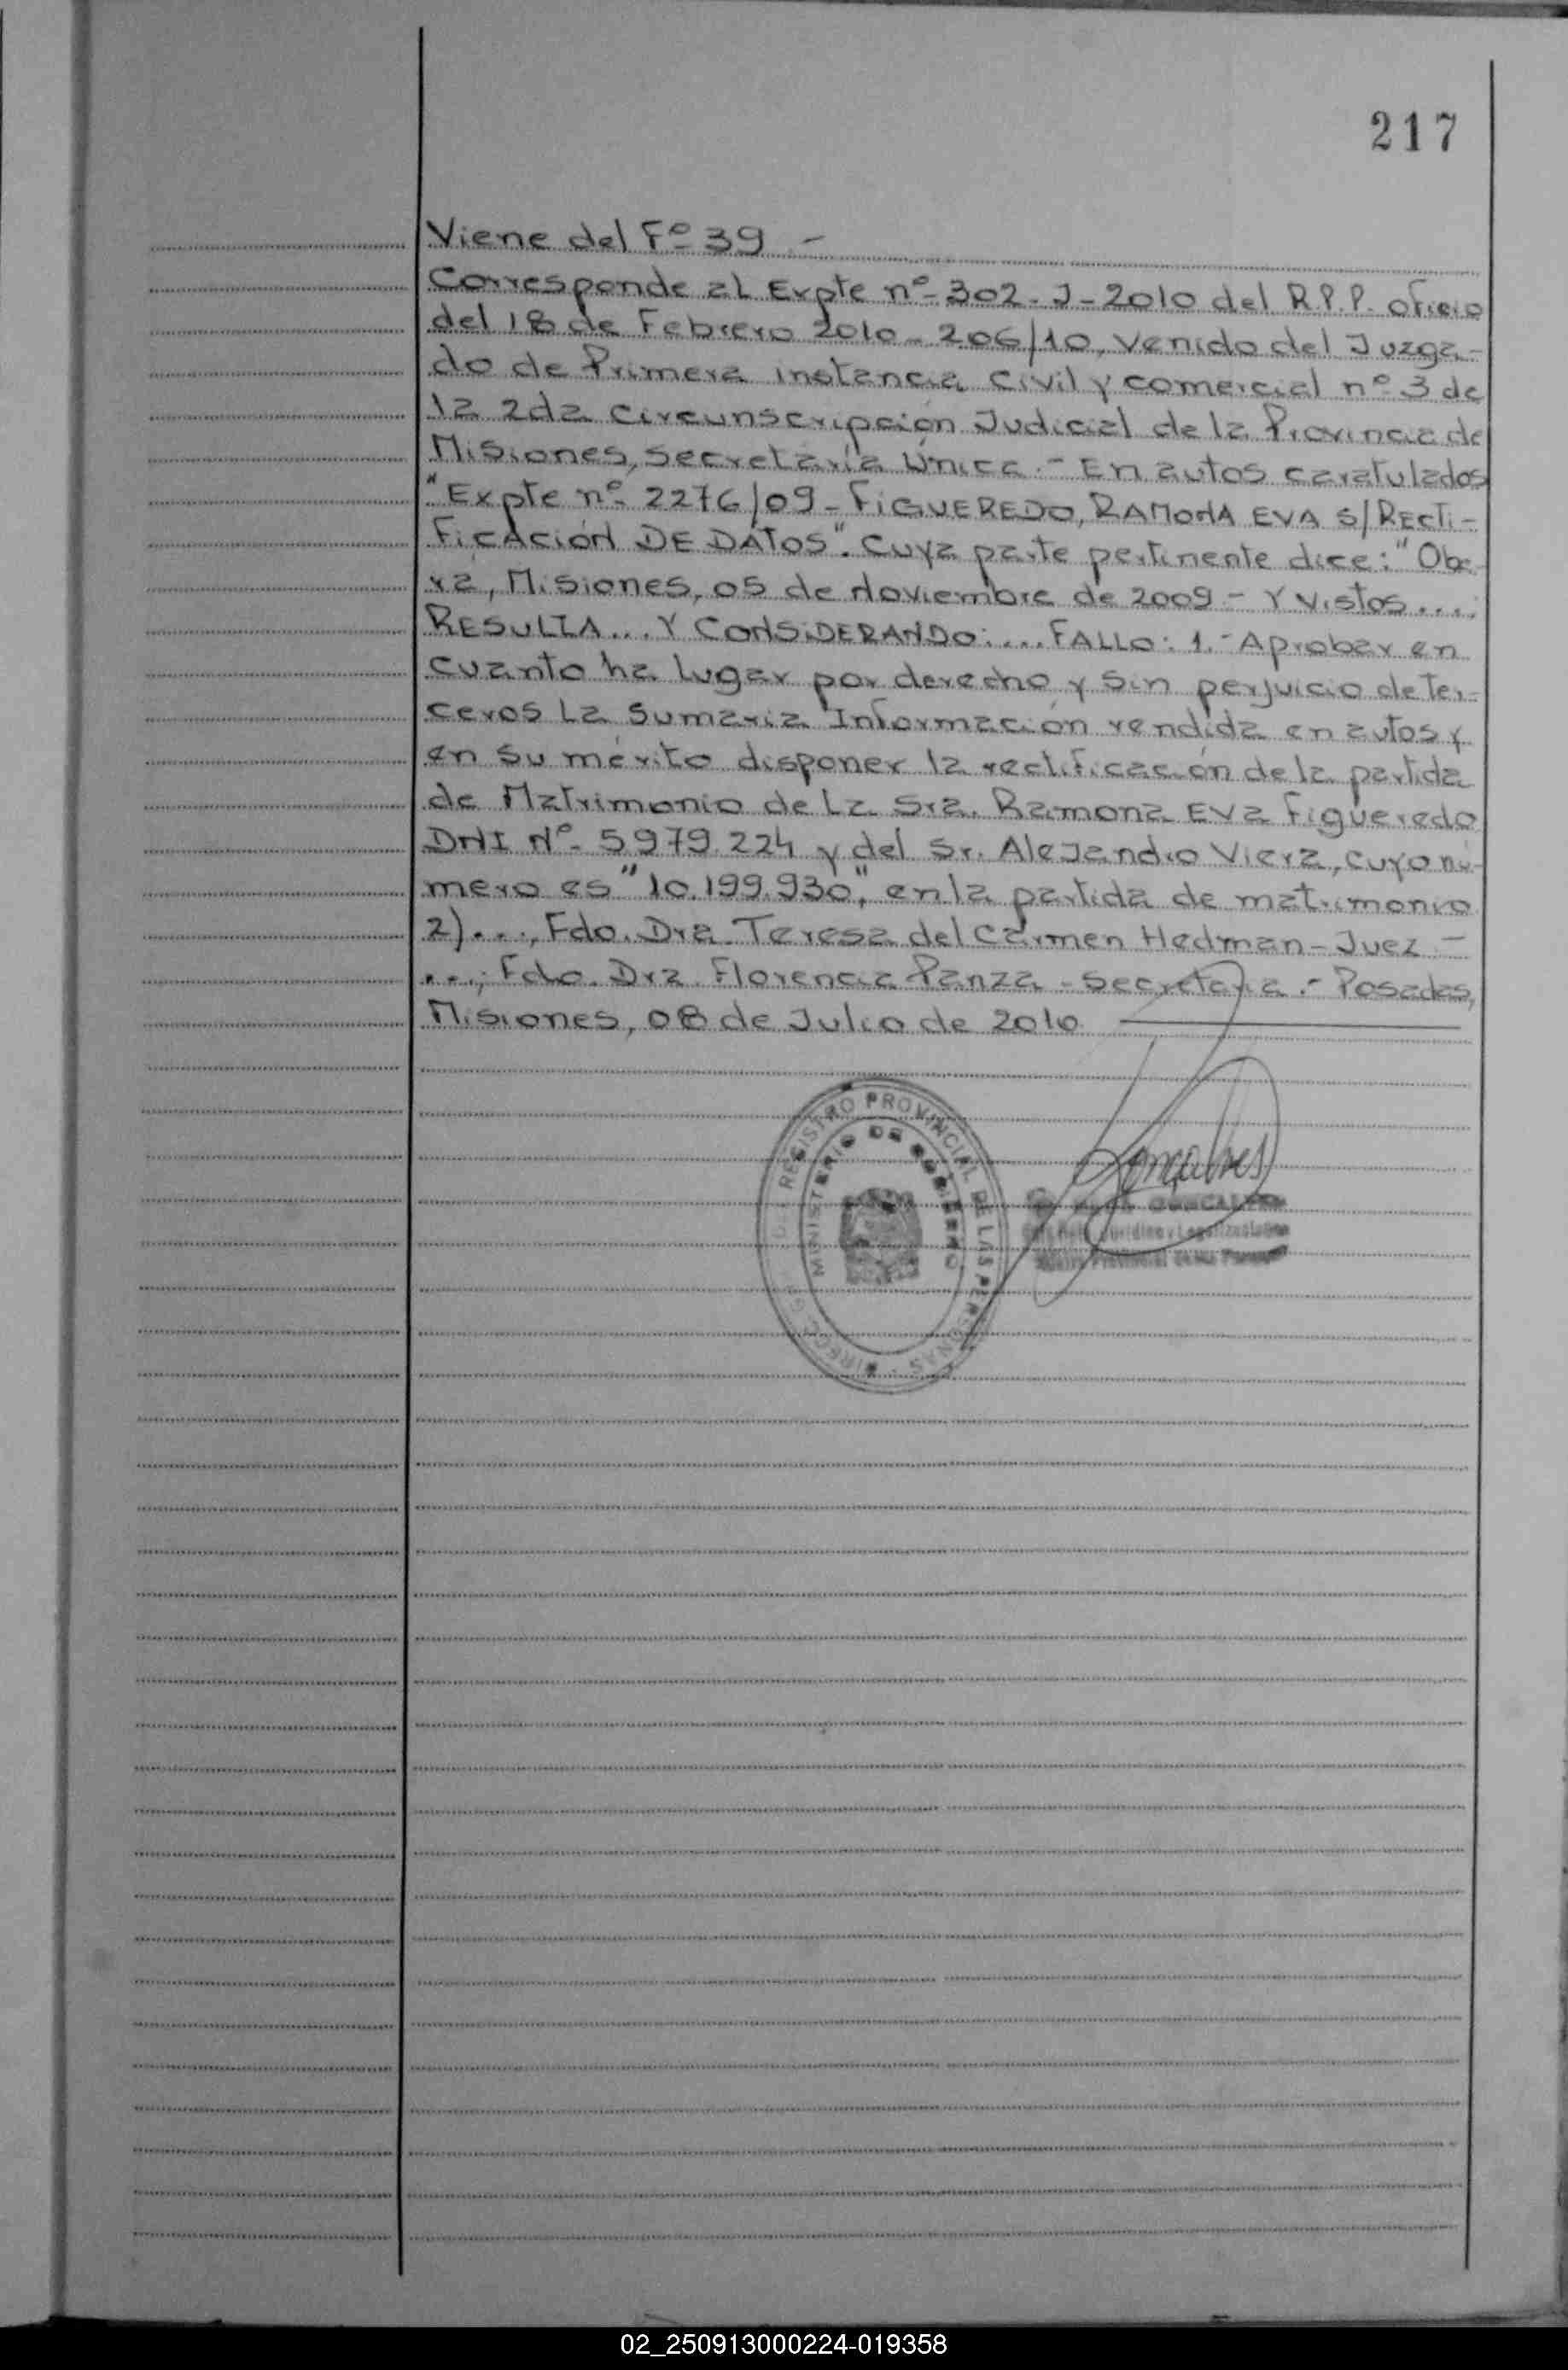 217
Viene del Fº 39 -
Corresponde al Expte nº-302-J-2010 del R.P.P. oficio
del 18 de Febrero 2010-206/10, venido del Juzga-
do de Primera instancia civil y comercial nº-3 de
la 2da circunscripción Judicial de la Provincia de
Misiones, secretaría Única.- En autos caratulados
"Expte nº- 2276/09-FIGUEREDO, RAMONA EVA S/RECTI-
FICACIÓN DE DATOS". Cuya parte pertinente dice: "Obe-
rá, Misiones, 05 de Noviembre de 2009- Y Vistos....;
RESULTA... Y CONSIDERANDO:....FALLO: 1.- Aprobar en
cuanto ha lugar por derecho y sin perjuicio de ter-
ceros La Sumaria Información rendida en autos y
en su mérito disponer la rectificación de la partida
de Matrimonio de La Sra. Ramona Eva Figueredo
DNI Nº- 5979.224 y del Sr. Alejandro Viera, cuyo nú-
mero es "10.199.930", en la partida de matrimonio
2)..., Fdo. Dra. Teresa del Carmen Hedman-Juez-
...; Fdo. Dra. Florencia Panza-secretaria.- Posadas,
Misiones, 08 de Julio de 2010
REGISTRO PROVINCIAL DE LAS PERSONAS
MINISTERIO DE GOBIERNO
Goncalves
GONCALVES
02_250913000224-019358